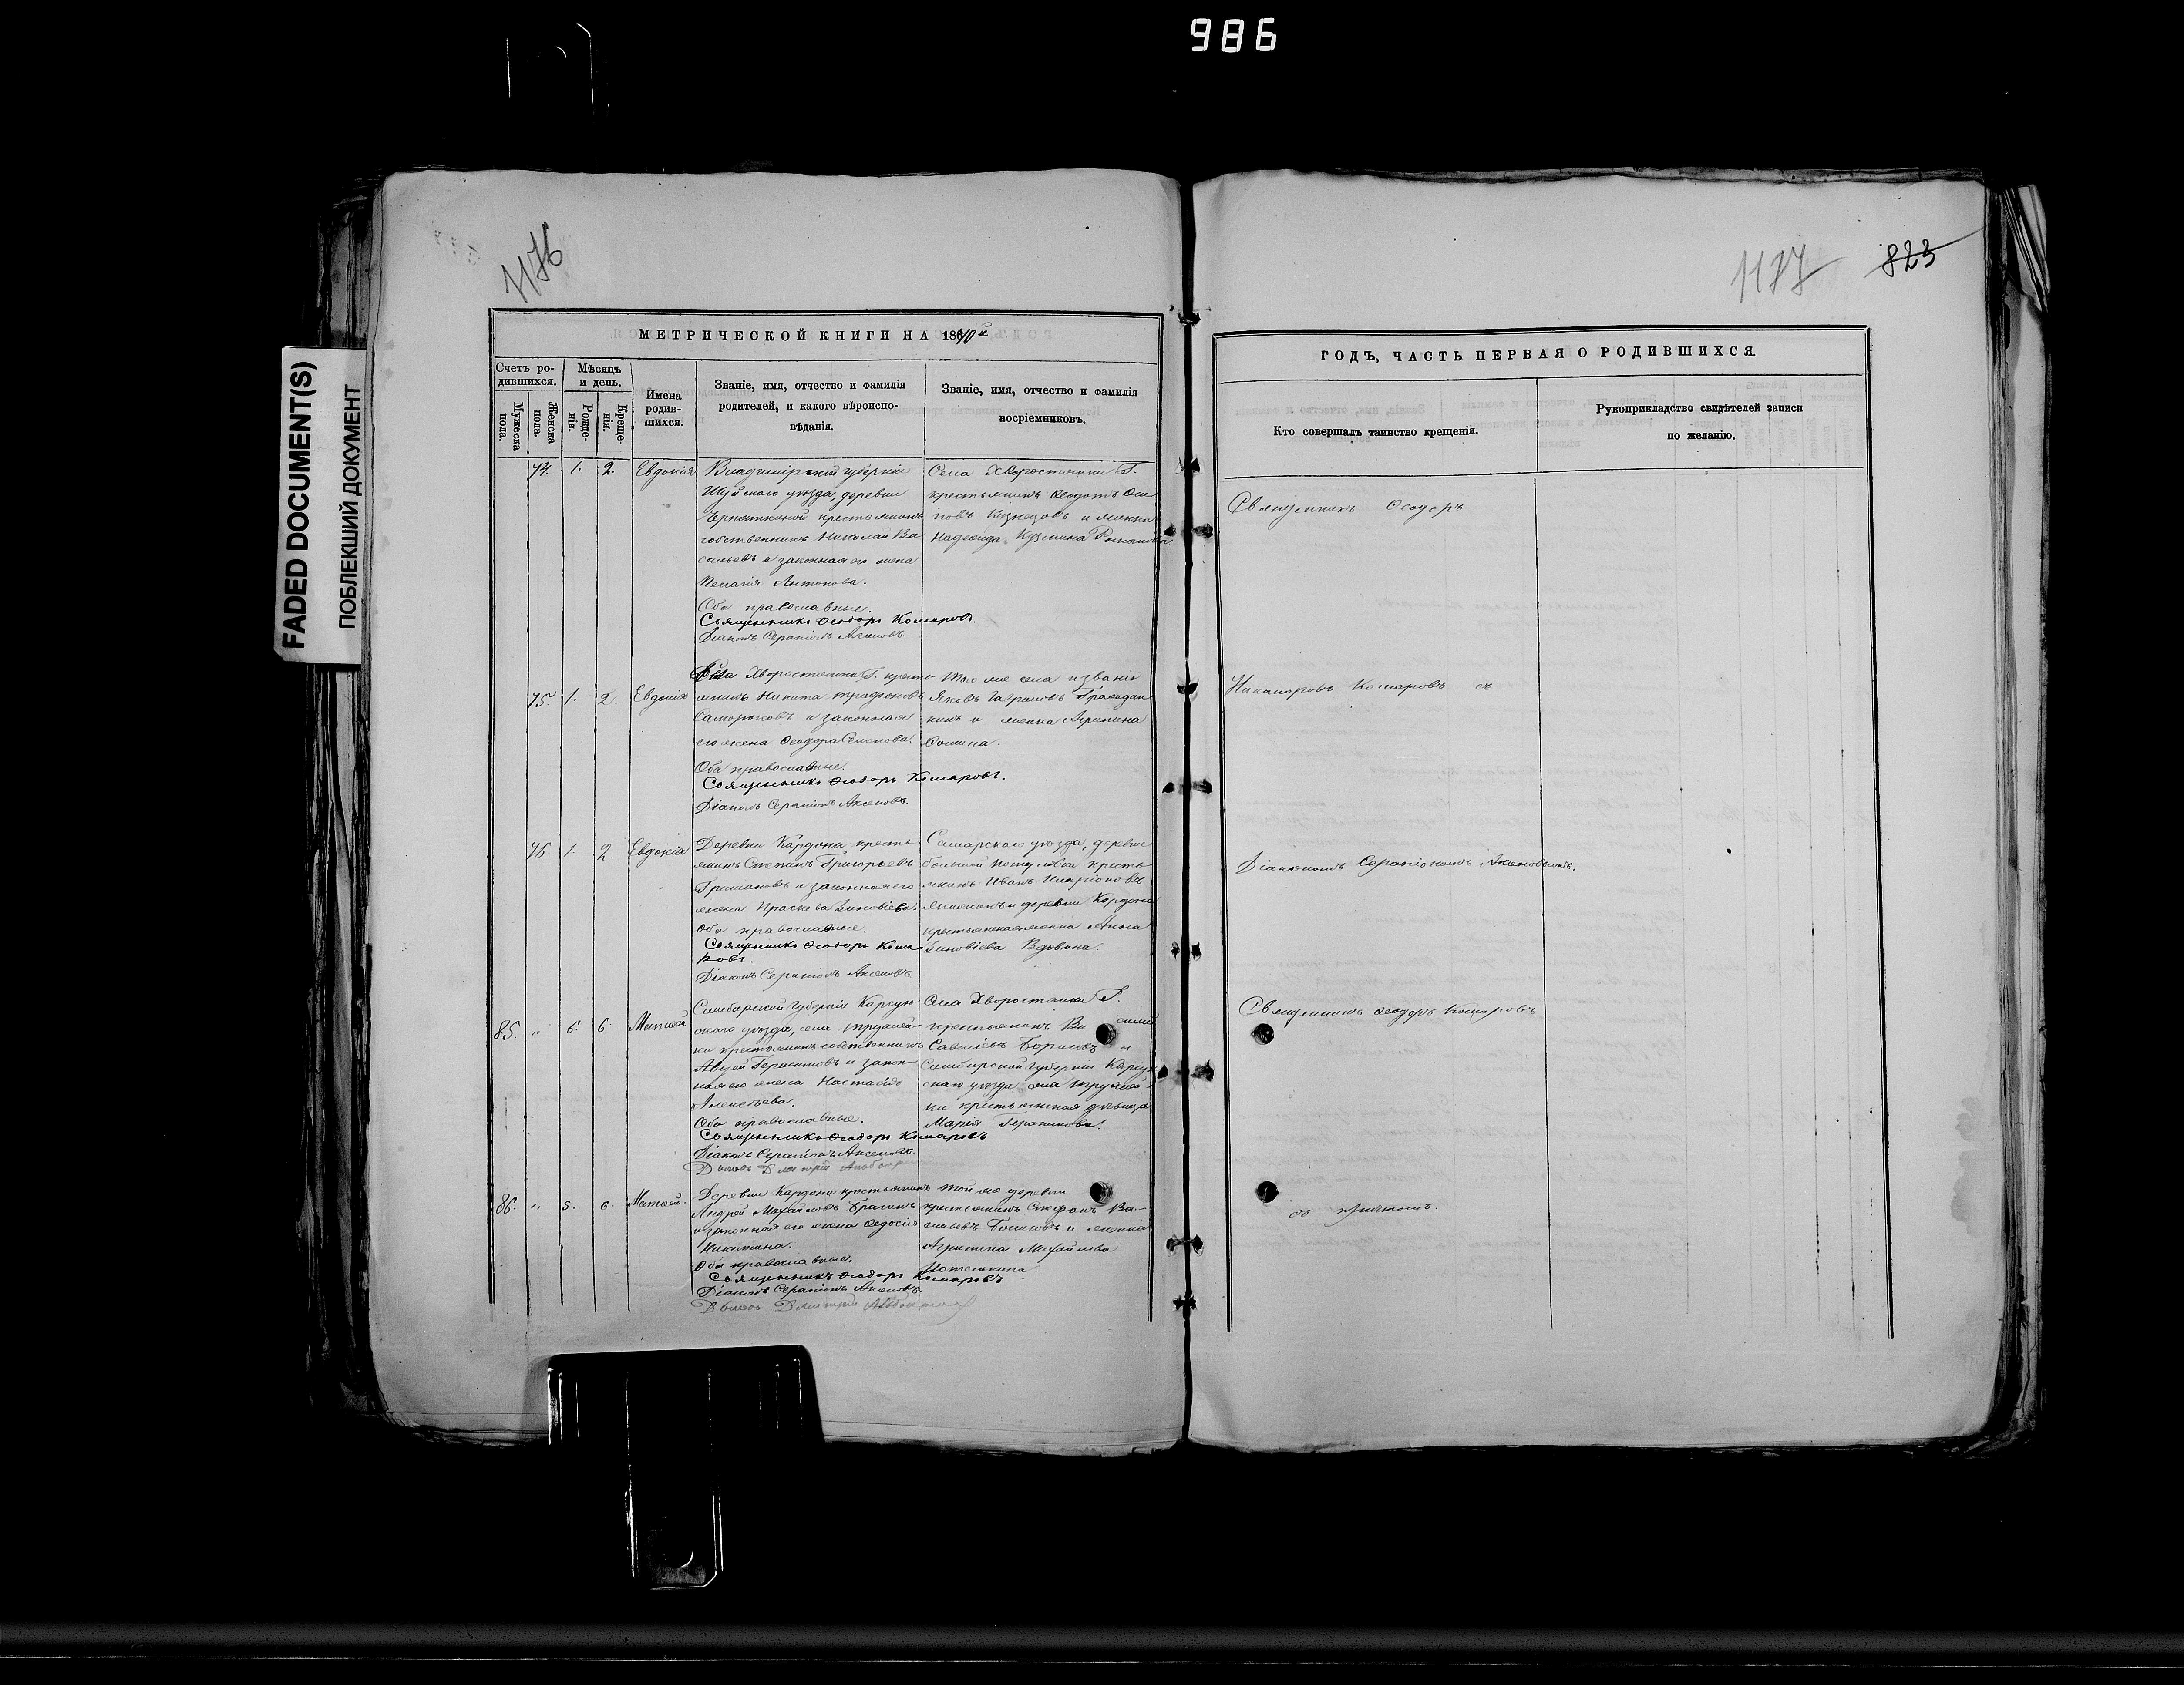 986
FADED DOCUMENT(S)
ПОБЛЕКШИЙ ДОКУМЕНТ
1176
МЕТРИЧЕСКОЙ КНИГИ НА 1870й
Счетъ ро-
дившихся.
Мѣсяцъ
и день.
Мужеска
пола.
Женска
пола.
Рожде-
нія.
Креще-
нія.
Имена
родив-
шихся.
Званіе, имя, отчество и фамилія
родителей, и какого вѣроиспо-
вѣданія.
Званіе, имя, отчество и фамилія
воспріемниковъ.
74. 1. 2. Евдокія
Владимірской губерніи
Шуйскаго уѣзда, деревни
крестьянинъ
собственникъ Николай Ва
сильевъ и законная его жена
Пелагія Антонова.
Оба православные.
Священникъ Ѳеодоръ Комаровъ.
Діаконъ Серапіонъ Аксеновъ
Села Хворостянки Г.
крестьянинъ Ѳеодотъ Оси
повъ и женка
Надежда Кузмина
75. 1. 2. Евдокія
Села Хворостянки Г. кресть-
янинъ Никита
и законная
его жена Ѳеодора Семенова.
Оба православные.
Священникъ Ѳеодоръ Комаровъ.
Діаконъ Серапіонъ Аксеновъ.
Тое же села и званія
Яковъ Гавриловъ Граждан
кинъ и женка Агрипина
Ѳомина.
76 1. 2. Евдокія
Деревни Кардона кресть
янинъ Степанъ Григорьевъ
и законная его
жена Праскева Зиновіева.
Оба православные.
Священникъ Ѳеодоръ Кома-
ровъ.
Діаконъ Серапіонъ Аксеновъ
Самарскаго уѣзда, деревни
большой кресть
янинъ Иванъ Иларіоновъ
и деревни Кардона
крестьянская женка Анна
Зиновіева Вдовина.
85. " 6. 6. Матвей
Симбирской губерніи Карсун-
скаго уѣзда, села
ки крестьянинъ собственникъ
Авдей Герасимовъ и закон-
ная его жена Настасія
Алексѣева.
Оба православные.
Священникъ Ѳеодоръ Комаровъ
Діаконъ Серапіонъ Аксеновъ.
Дьячекъ Дмитрій
Села Хворостянки Г.
крестьянинъ Ва силій
Савеліевъ и
Симбирской губерніи Карсун
скаго уѣзда села
ки крестьянская дѣвица
Марія Герасимова.
86. " 5. 6. Матвей.
Деревни Кардона крестьянинъ
Андрей Михайловъ Брагинъ
и законная его жена Ѳедосія
Никитина.
Оба православные.
Священникъ Ѳеодоръ Комаровъ
Діаконъ Серапіонъ Аксеновъ.
Дьячекъ Дмитрій
Той же деревни
крестьянинъ Стефанъ Ва-
сильевъ и женка
Агрипина Михайлова
Потемкина.
1177 823
ГОДЪ, ЧАСТЬ ПЕРВАЯ О РОДИВШИХСЯ.
Кто совершалъ таинство крещенія.
Рукоприкладство свидѣтелей записи
по желанію.
Священникъ Ѳеодоръ
Никаноровъ Комаровъ съ
Діакономъ Серапіономъ Аксеновымъ.
Священникъ Ѳеодоръ Комаровъ
съ причтомъ.